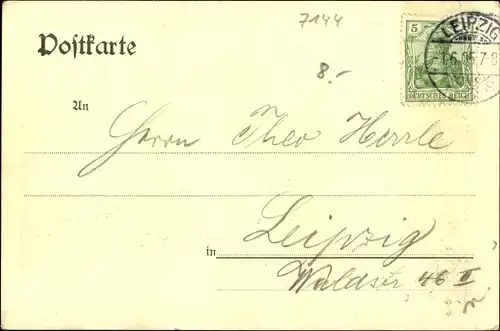 7144
Postkarte
8.-
5
DEUTSCHES REICH
LEIPZIG
An
Herrn Theo Herrle
in Leipzig
Waldstr 46 II